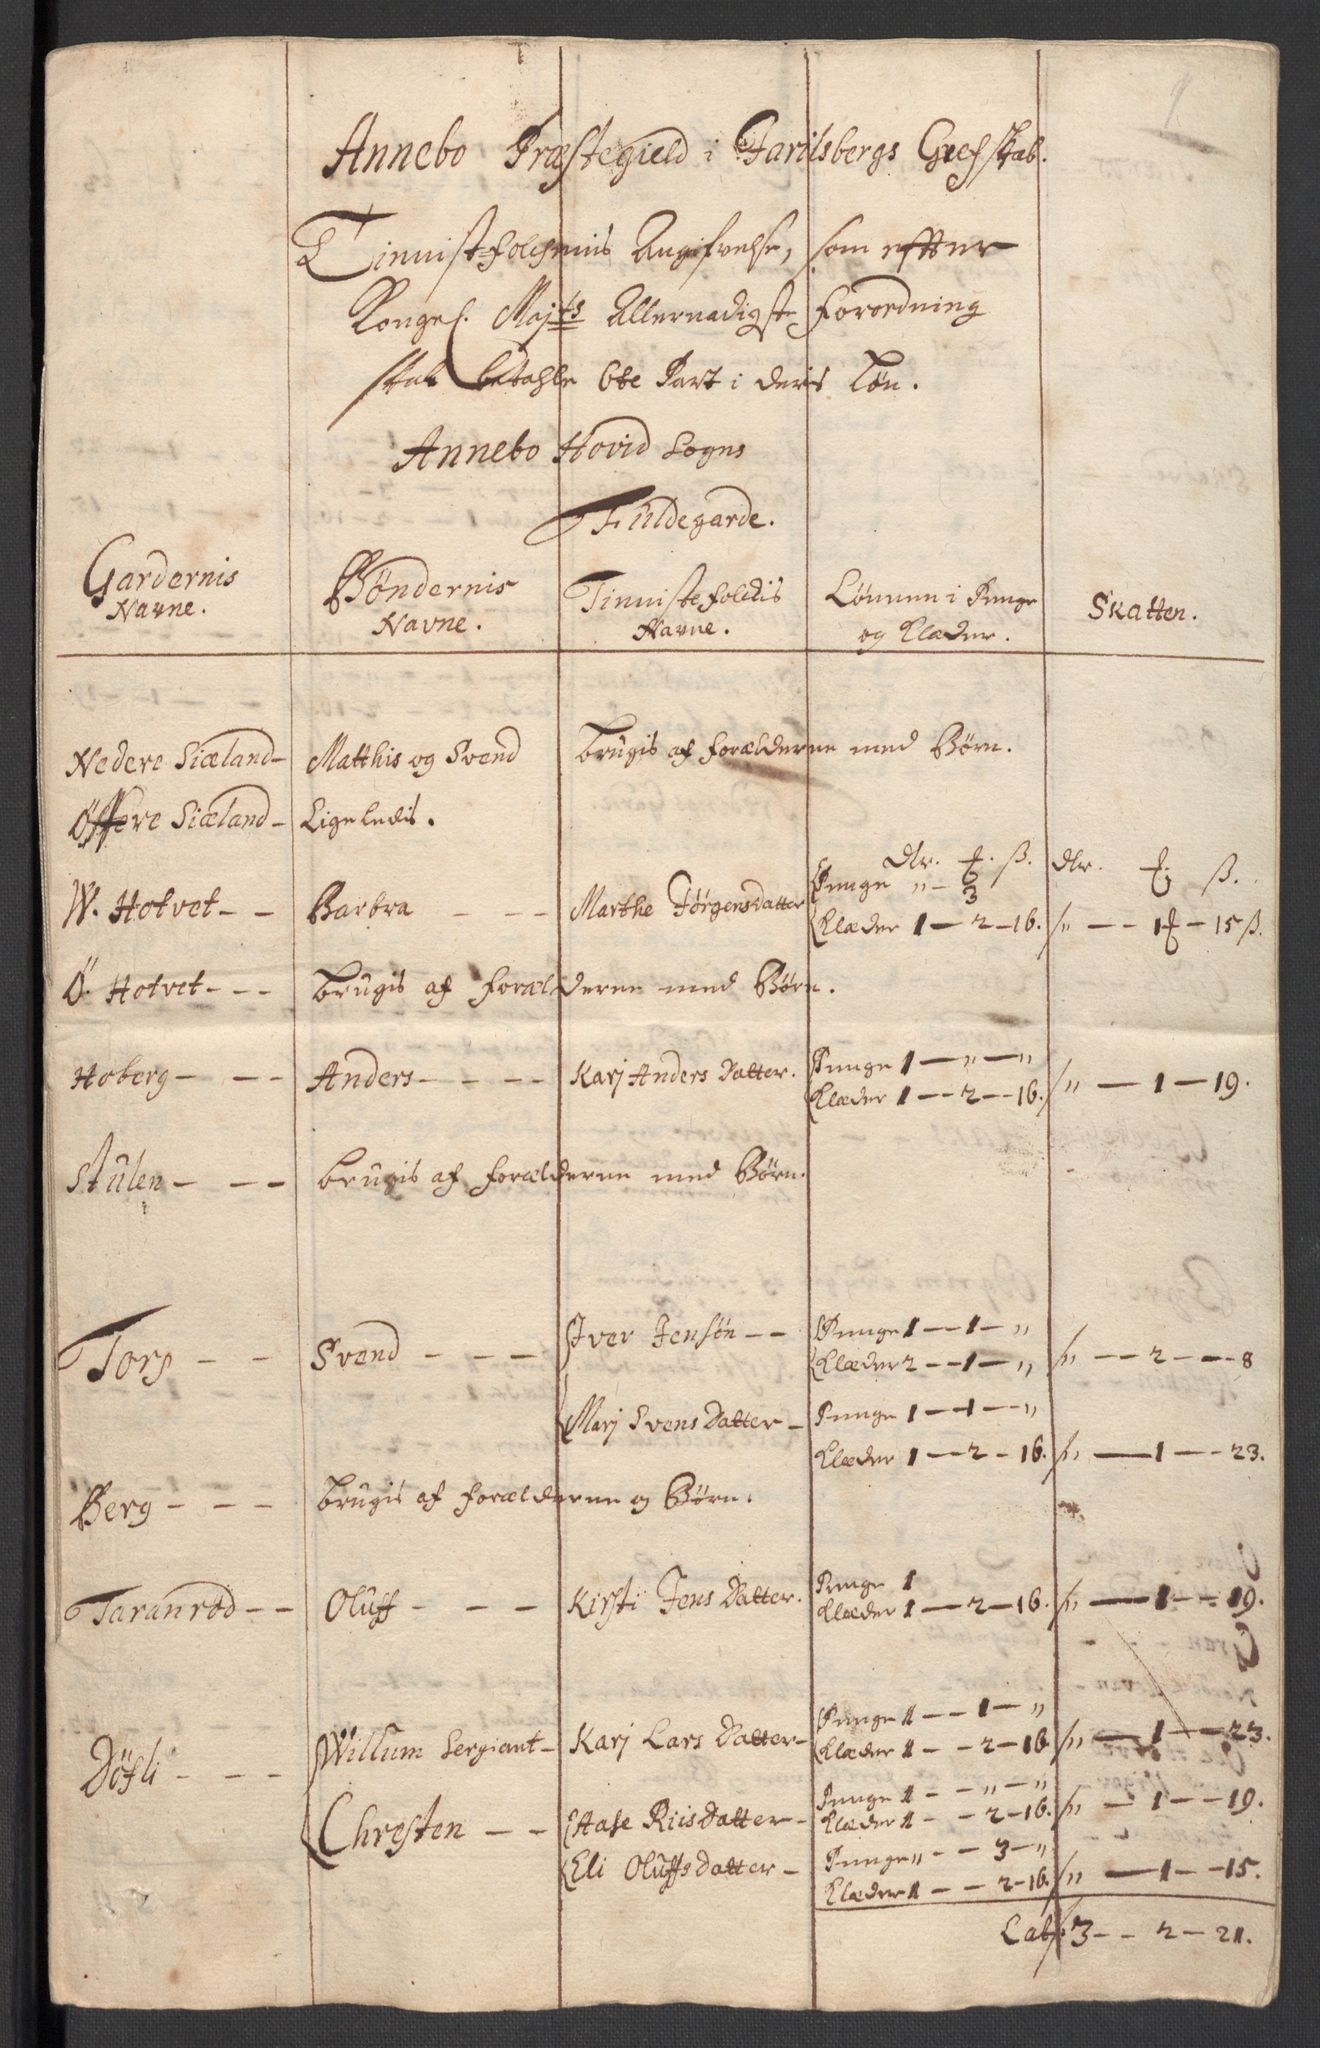 Annebo Præstegield i Jarlsbergs Grefskab.
Tinnistfolchenis Angifvelse, som effter
Kongel. Majts Allernadigste Forordning
skal betahle 6te Part i deris Løn.
Annebo Hovid Sogns
Fuldegarde.
Gardernis Navne. Bøndernis Navne. Tinnistefolchis Navne. Lønnen i Penge og Klæder. Skatten.
Nedere Siæland- Matthis og Svend Brugis af forælderne med Børn.
Øffere Siæland- Ligeledis.
dlr. ƶ. ß. dlr. ƶ. ß.
W. Hotvet - - Barbra - - - Marthe Jørgensdatter Penge „ - 3
Klæder 1 - 2 - 16. „ - - 1ƶ - 15ß.
Ö. Hotvet - - - Brugis af forælderne med Børn.
Hoberg - - - Anders - - - - Karj Anders Datter. Penge 1 - „ - „
Klæder 1 - - 2 - - 16. „ - 1 - 19.
Stulen - - - brugis af forælderne med Børn.
Torp - - Svend - - - Iver Jensøn - - Penge 1 - - 1 - „
Klæder 2 - - 1 - „ „ - - 2 - - 8
Marj Svens Datter - Penge 1 - 1 - „
Klæder 1 - - 2 - 16. „ - 1 - - 23.
Berg - - - brugis af forælderne og Børn.
Taranrød - - Oluff - - - Kirsti Jens Datter. Penge 1
Klæder 1 - 2 - 16. „ - 1 - - 19.
Döfli - - - Willum Sergiant - Karj Lars Datter - Penge 1 - - 1 - „
Klæder 1 - - 2 - 16 „ - 1 - - 23.
Chresten - - Aase Riis Datter - Penge 1 - - „ - „
Klæder 1 - - 2 - 16. „ - 1 - - 19.
Eli Oluffs datter - Penge „ - - 3 - „
Klæder 1 - - 2 - 16. „ - 1 - - 15.
Lat. 3 - - 2 - 21.